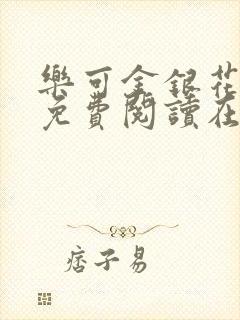 樂可金銀花
免費閱讀在
痞子易